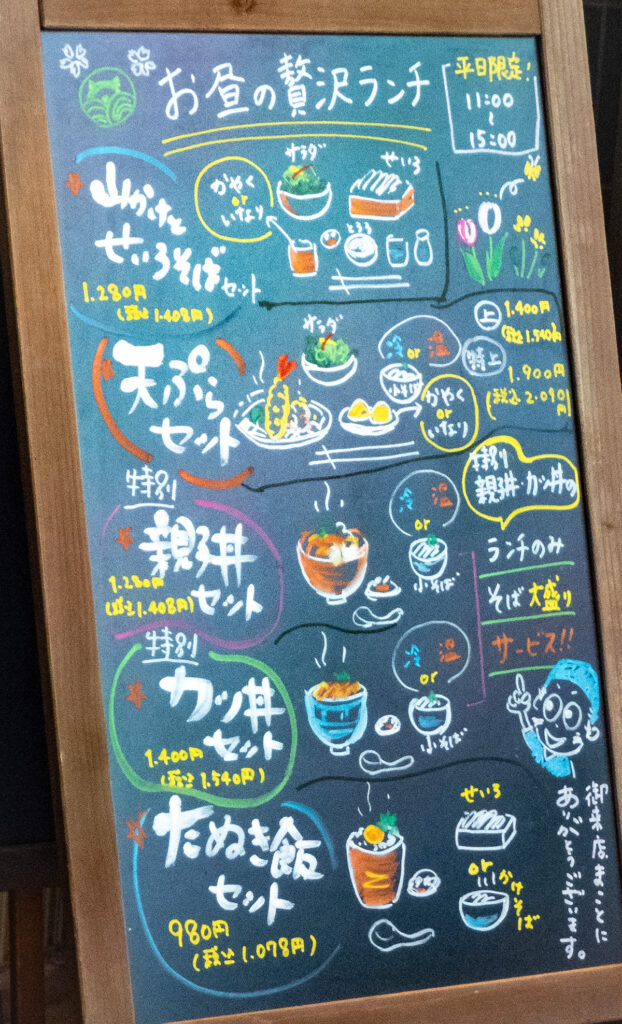 お昼の贅沢ランチ
平日限定!
11:00
~
15:00
山かけと
せいろそばセット
1.280円
(税込1.408円)
かやく
or
いなり
サラダ
せいろ
とろろ
天ぷら
セット
サラダ
冷 or 温
小そば
かやく
or
いなり
上
1.400円
(税込1.540円)
特上
1.900円
(税込2.090円)
特別
親子丼
セット
1.280円
(税込1.408円)
冷 温
or
小そば
特別
親子丼・カツ丼の
ランチのみ
そば大盛り
サービス!!
特別
カツ丼
セット
1.400円
(税込1.540円)
冷 温
or
小そば
たぬき飯
セット
980円
(税込1.078円)
せいろ
or
かけそば
御来店まことに
ありがとうございます。